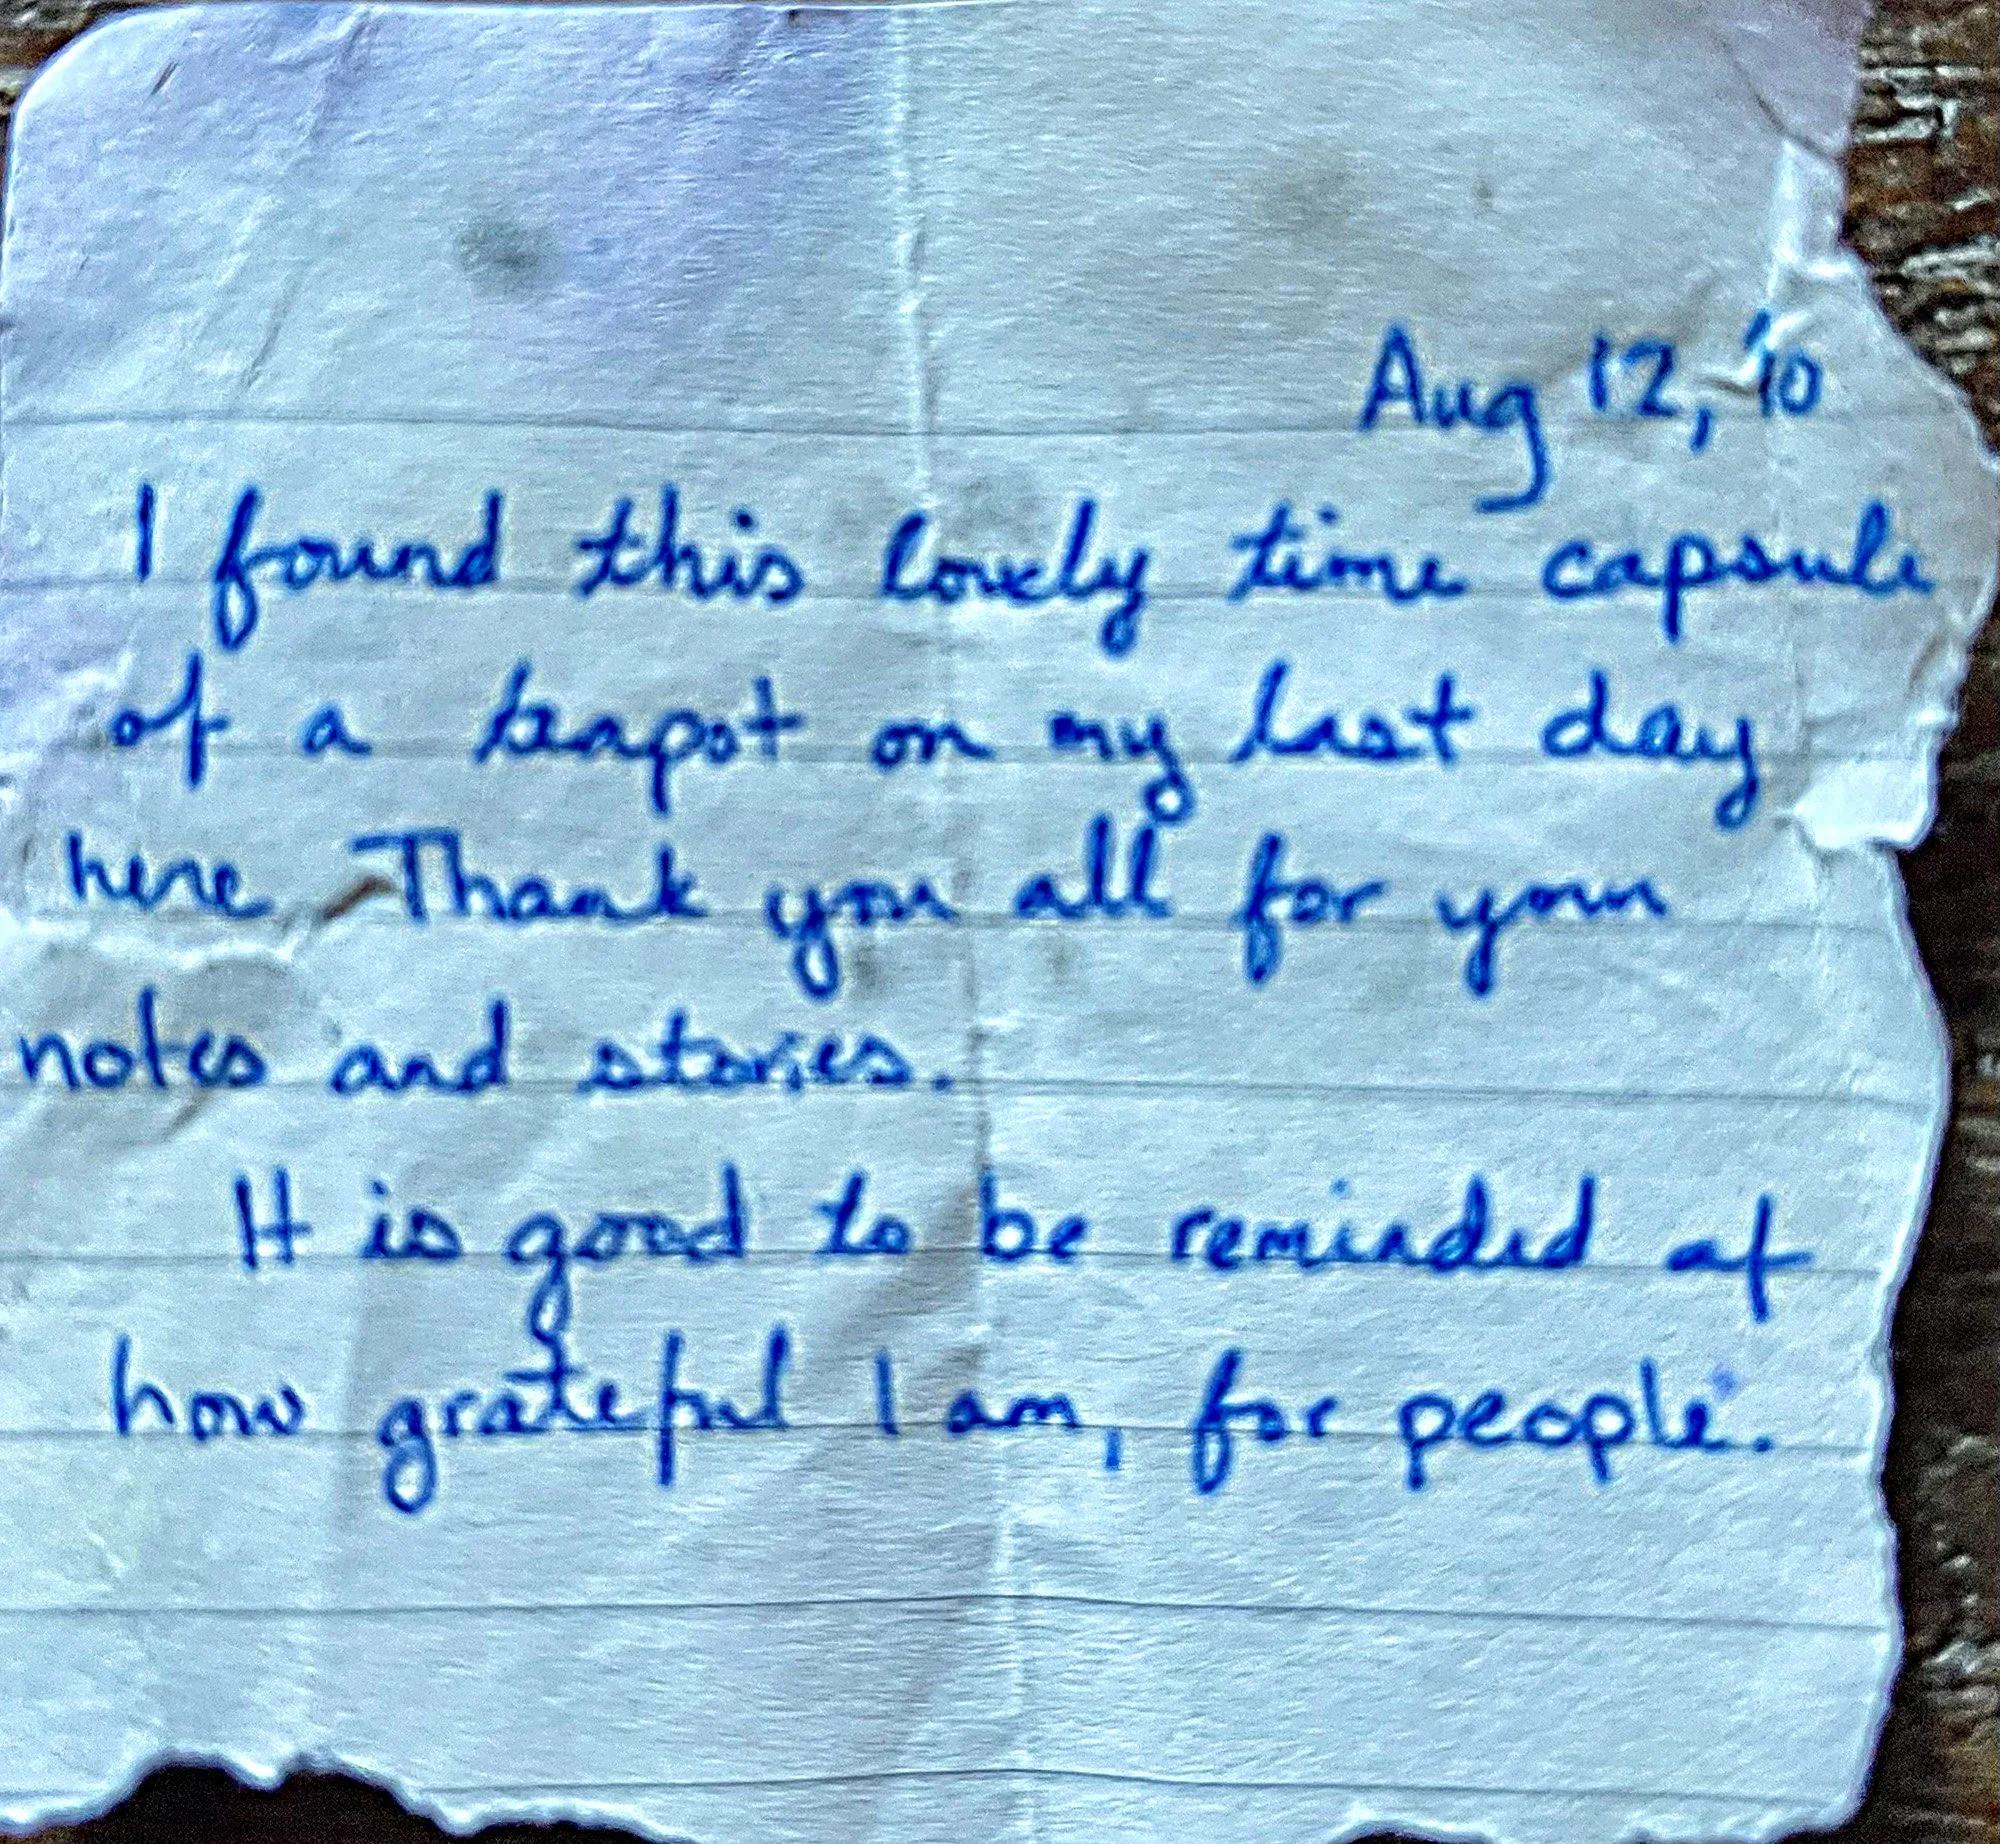 Aug 12, '10
I found this lovely time capsule
of a teapot on my last day
here. Thank you all for your
notes and stories.
It is good to be reminded of
how grateful I am, for people.